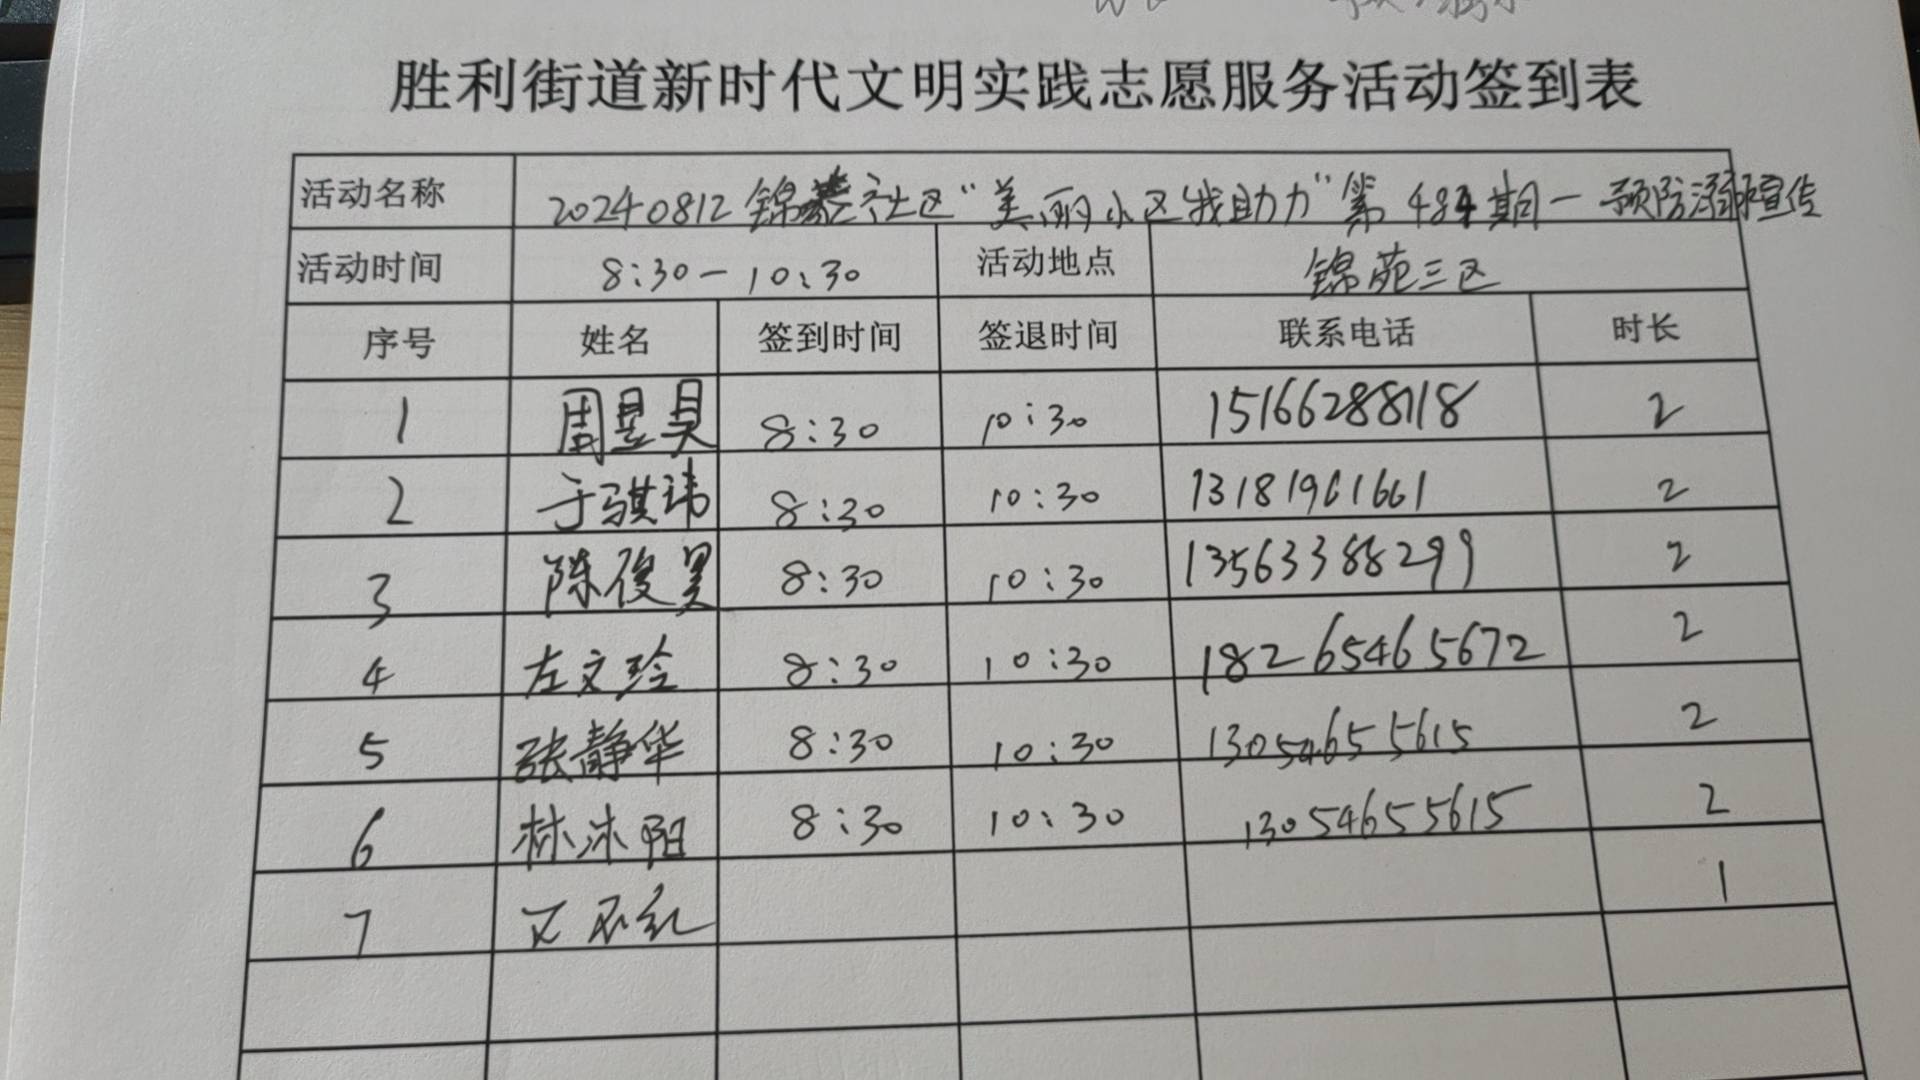 胜利街道新时代文明实践志愿服务活动签到表
活动名称 20240812 锦苑社区“美丽小区我助力”第484期—预防溺水宣传
活动时间 8:30—10:30 活动地点 锦苑三区
序号 姓名 签到时间 签退时间 联系电话 时长
1 周昱昊 8:30 10:30 15166288118 2
2 于骐玮 8:30 10:30 13181961661 2
3 陈俊昊 8:30 10:30 13563388299 2
4 左文玲 8:30 10:30 18265465672 2
5 张静华 8:30 10:30 13054655615 2
6 林沐阳 8:30 10:30 13054655615 2
7 1